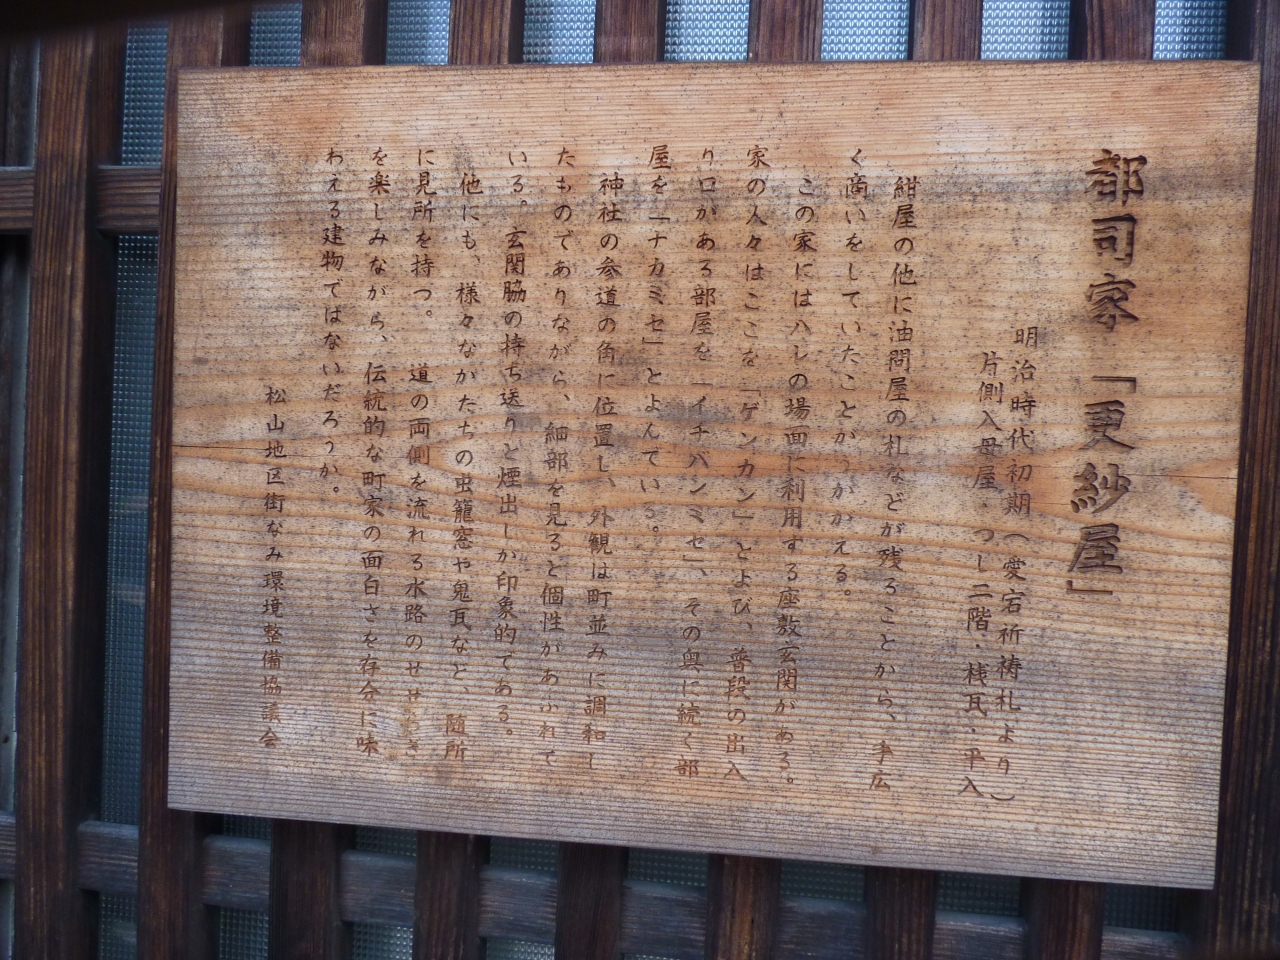 都司家「更紗屋」
明治時代初期（愛宕祈祷札より）
片側入母屋・つし二階・桟瓦・平入
紺屋の他に油問屋の札などが残ることから、手広
く商いをしていたことがうかがえる。
この家にはハレの場面に利用する座敷玄関がある。
家の人々はここを「ゲンカン」とよび、普段の出入
り口がある部屋を「イチバンミセ」、その奥に続く部
屋を「ナカミセ」とよんでいる。
神社の参道の角に位置し、外観は町並みに調和し
たものでありながら、細部を見ると個性があふれて
いる。玄関脇の持ち送りと煙出しが印象的である。
他にも、様々なかたちの虫籠窓や鬼瓦など、随所
に見所を持つ。道の両側を流れる水路のせせらぎ
を楽しみながら、伝統的な町家の面白さを存分に味
わえる建物ではないだろうか。
松山地区街なみ環境整備協議会